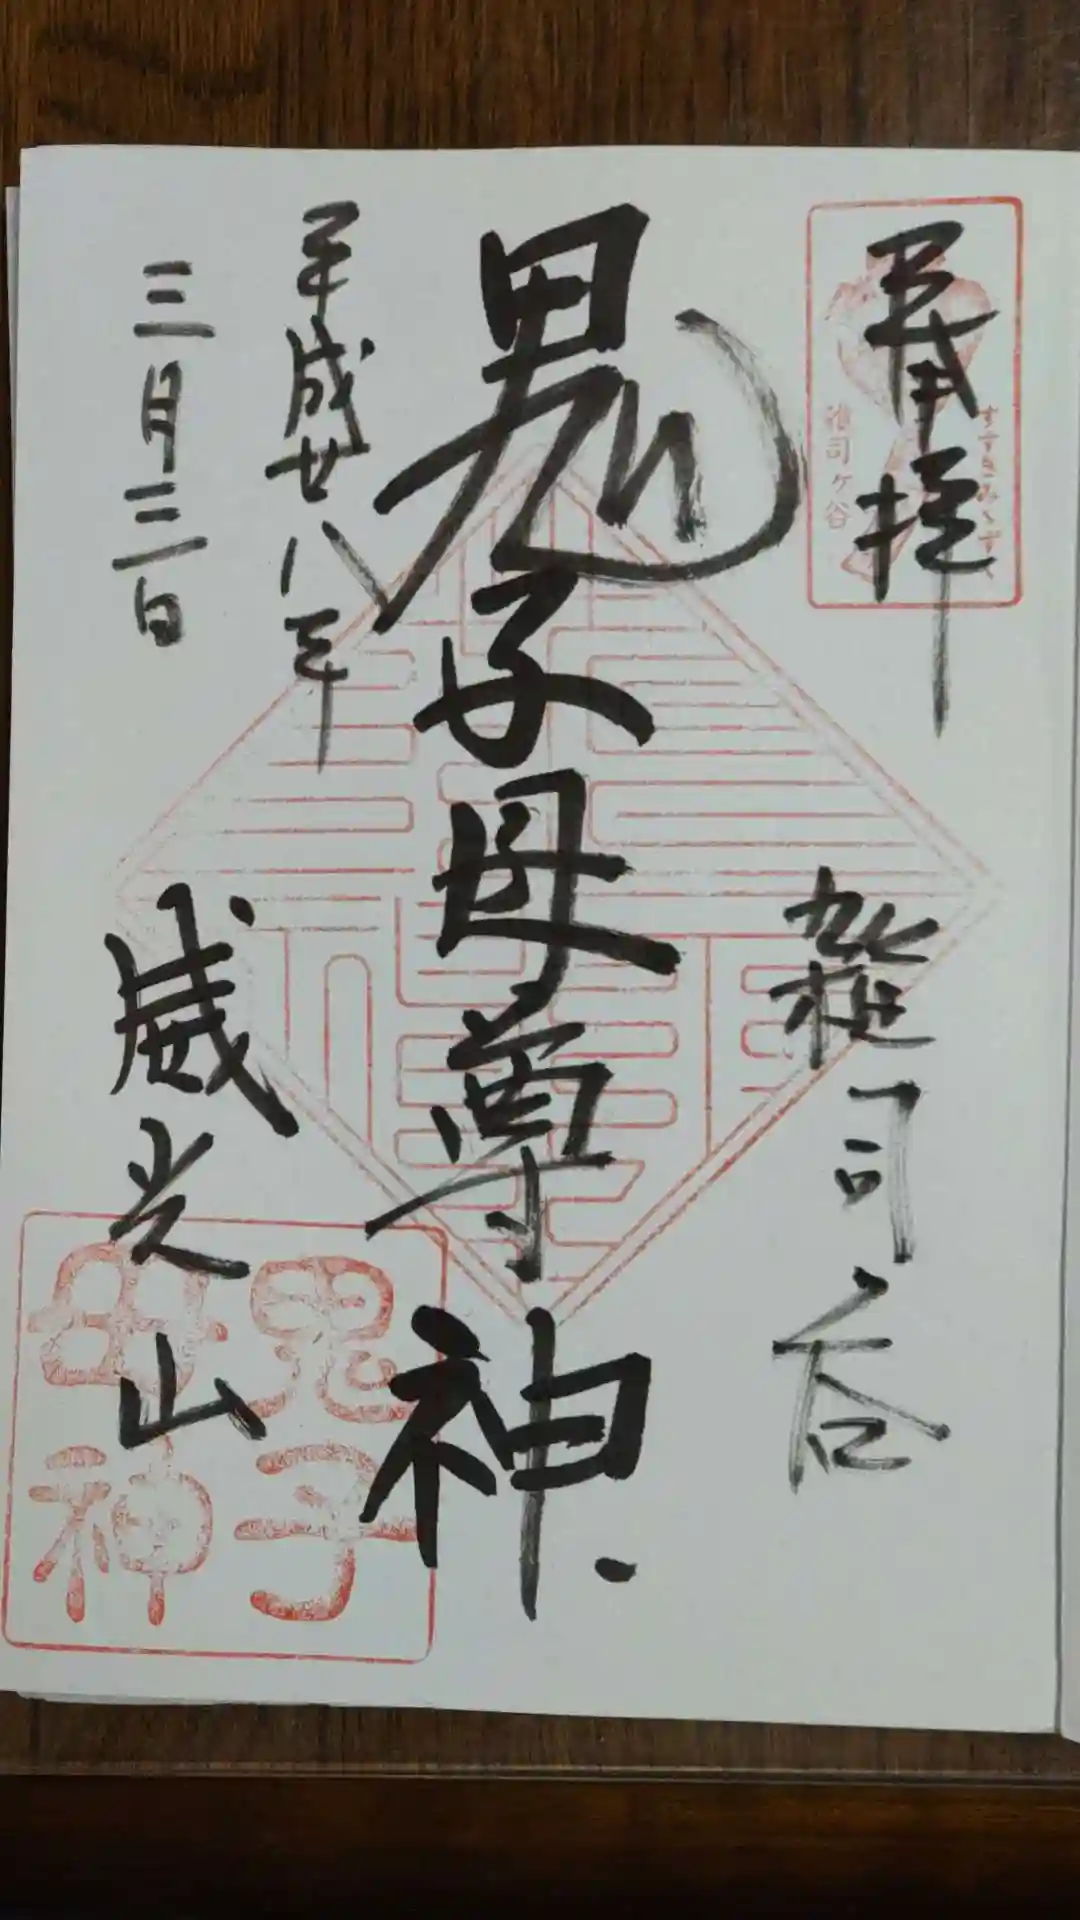 奉拝
すすきみゝずく
雑司ヶ谷
雑司ヶ谷
鬼子母尊神
平成廿八年
三月三日
威光山
鬼子
母神